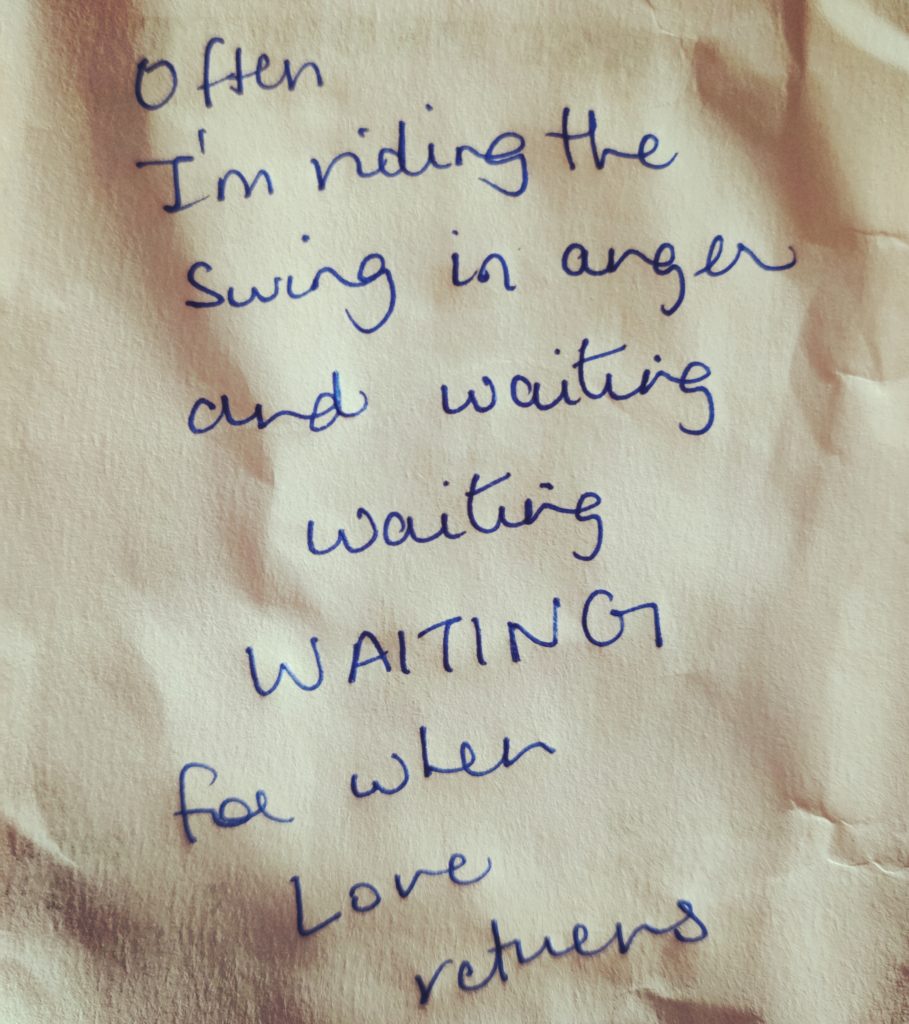 Often
I'm riding the
swing in anger
and waiting
waiting
WAITING
for when
Love
returns